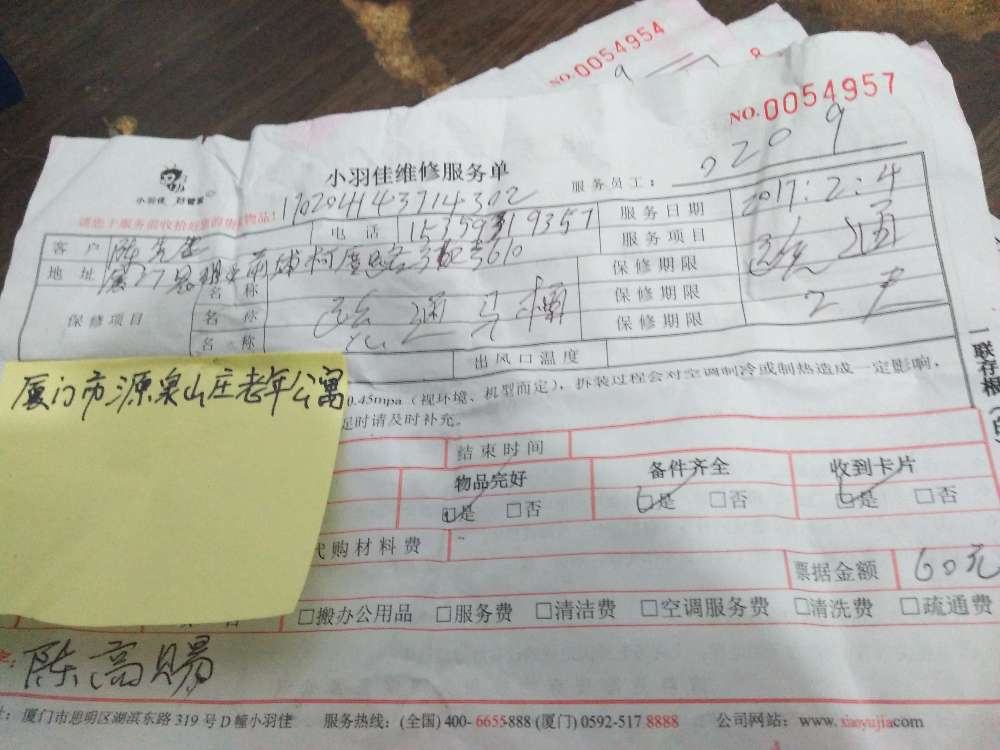 NO.0054954
NO.0054957
小羽佳维修服务单
服务员工： 0209
小羽佳 好管家
170204143714302
请您于服务前收拾好您的贵重物品！
客户 陈先生 电话 15359319357 服务日期 2017:2:4
地址 服务项目 疏通
名称 保修期限
保修项目 名称 疏通马桶 保修期限
名称 保修期限
出风口温度
0.45mpa（视环境、机型而定），拆装过程会对空调制冷或制热造成一定影响，
足时请及时补充。
一联存根
厦门市源泉山庄老年公寓
结束时间
物品完好 备件齐全 收到卡片
□是 □否 □是 □否 □是 □否
代购材料费
票据金额 60元
□搬办公用品 □服务费 □清洁费 □空调服务费 □清洗费 □疏通费
陈高赐
址：厦门市思明区湖滨东路319号D幢小羽佳 服务热线：(全国) 400-6655888 (厦门) 0592-517 8888 公司网站：www.xiaoyujia.com